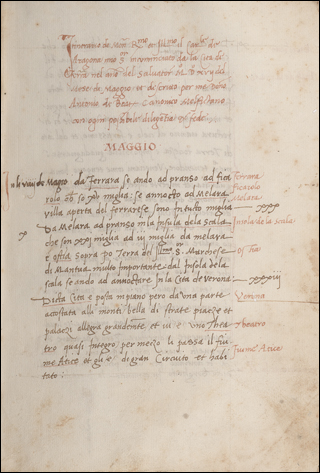 Itinerario de Mon. R.mo et Ill.mo il Card. de
Aragona mo incominciato da la cita di
Ferrara nel anno del Salvator M. D. XVIJ del
mese di Maggio et descritto per me Donno
Antonio de Beatis Canonico Melfictano
con ogni possibile diligentia et fede
MAGGIO
da Ferrara se andò ad pranso ad fica
rolo miglia: se annoctò ad Melara
villa aperta del ferrarese, sono in tutto miglia
Da Melara ad pranso in la Insula dela Scala
che son XXI miglia ad iij miglia da melara
è ostia sopra po Terra del Ill.mo S. Marchese
di Mantua, molto importante. dal Insola dela
scala se andò ad annoctare in la Cita de Verona
Dicta cita è posta in piano però da una parte
acostata alli monti, bella di strate piaeze et
palaezi allegra grandemente et vi è uno Thea
tro quasi integro, per mezo li passa il fiu
me Atice et gli è di gran Circuito et habi
tato:
Ferrara
Ficarolo
Melara
Insula de la scala
Ostia
Verona
Theatro
fiume Atice